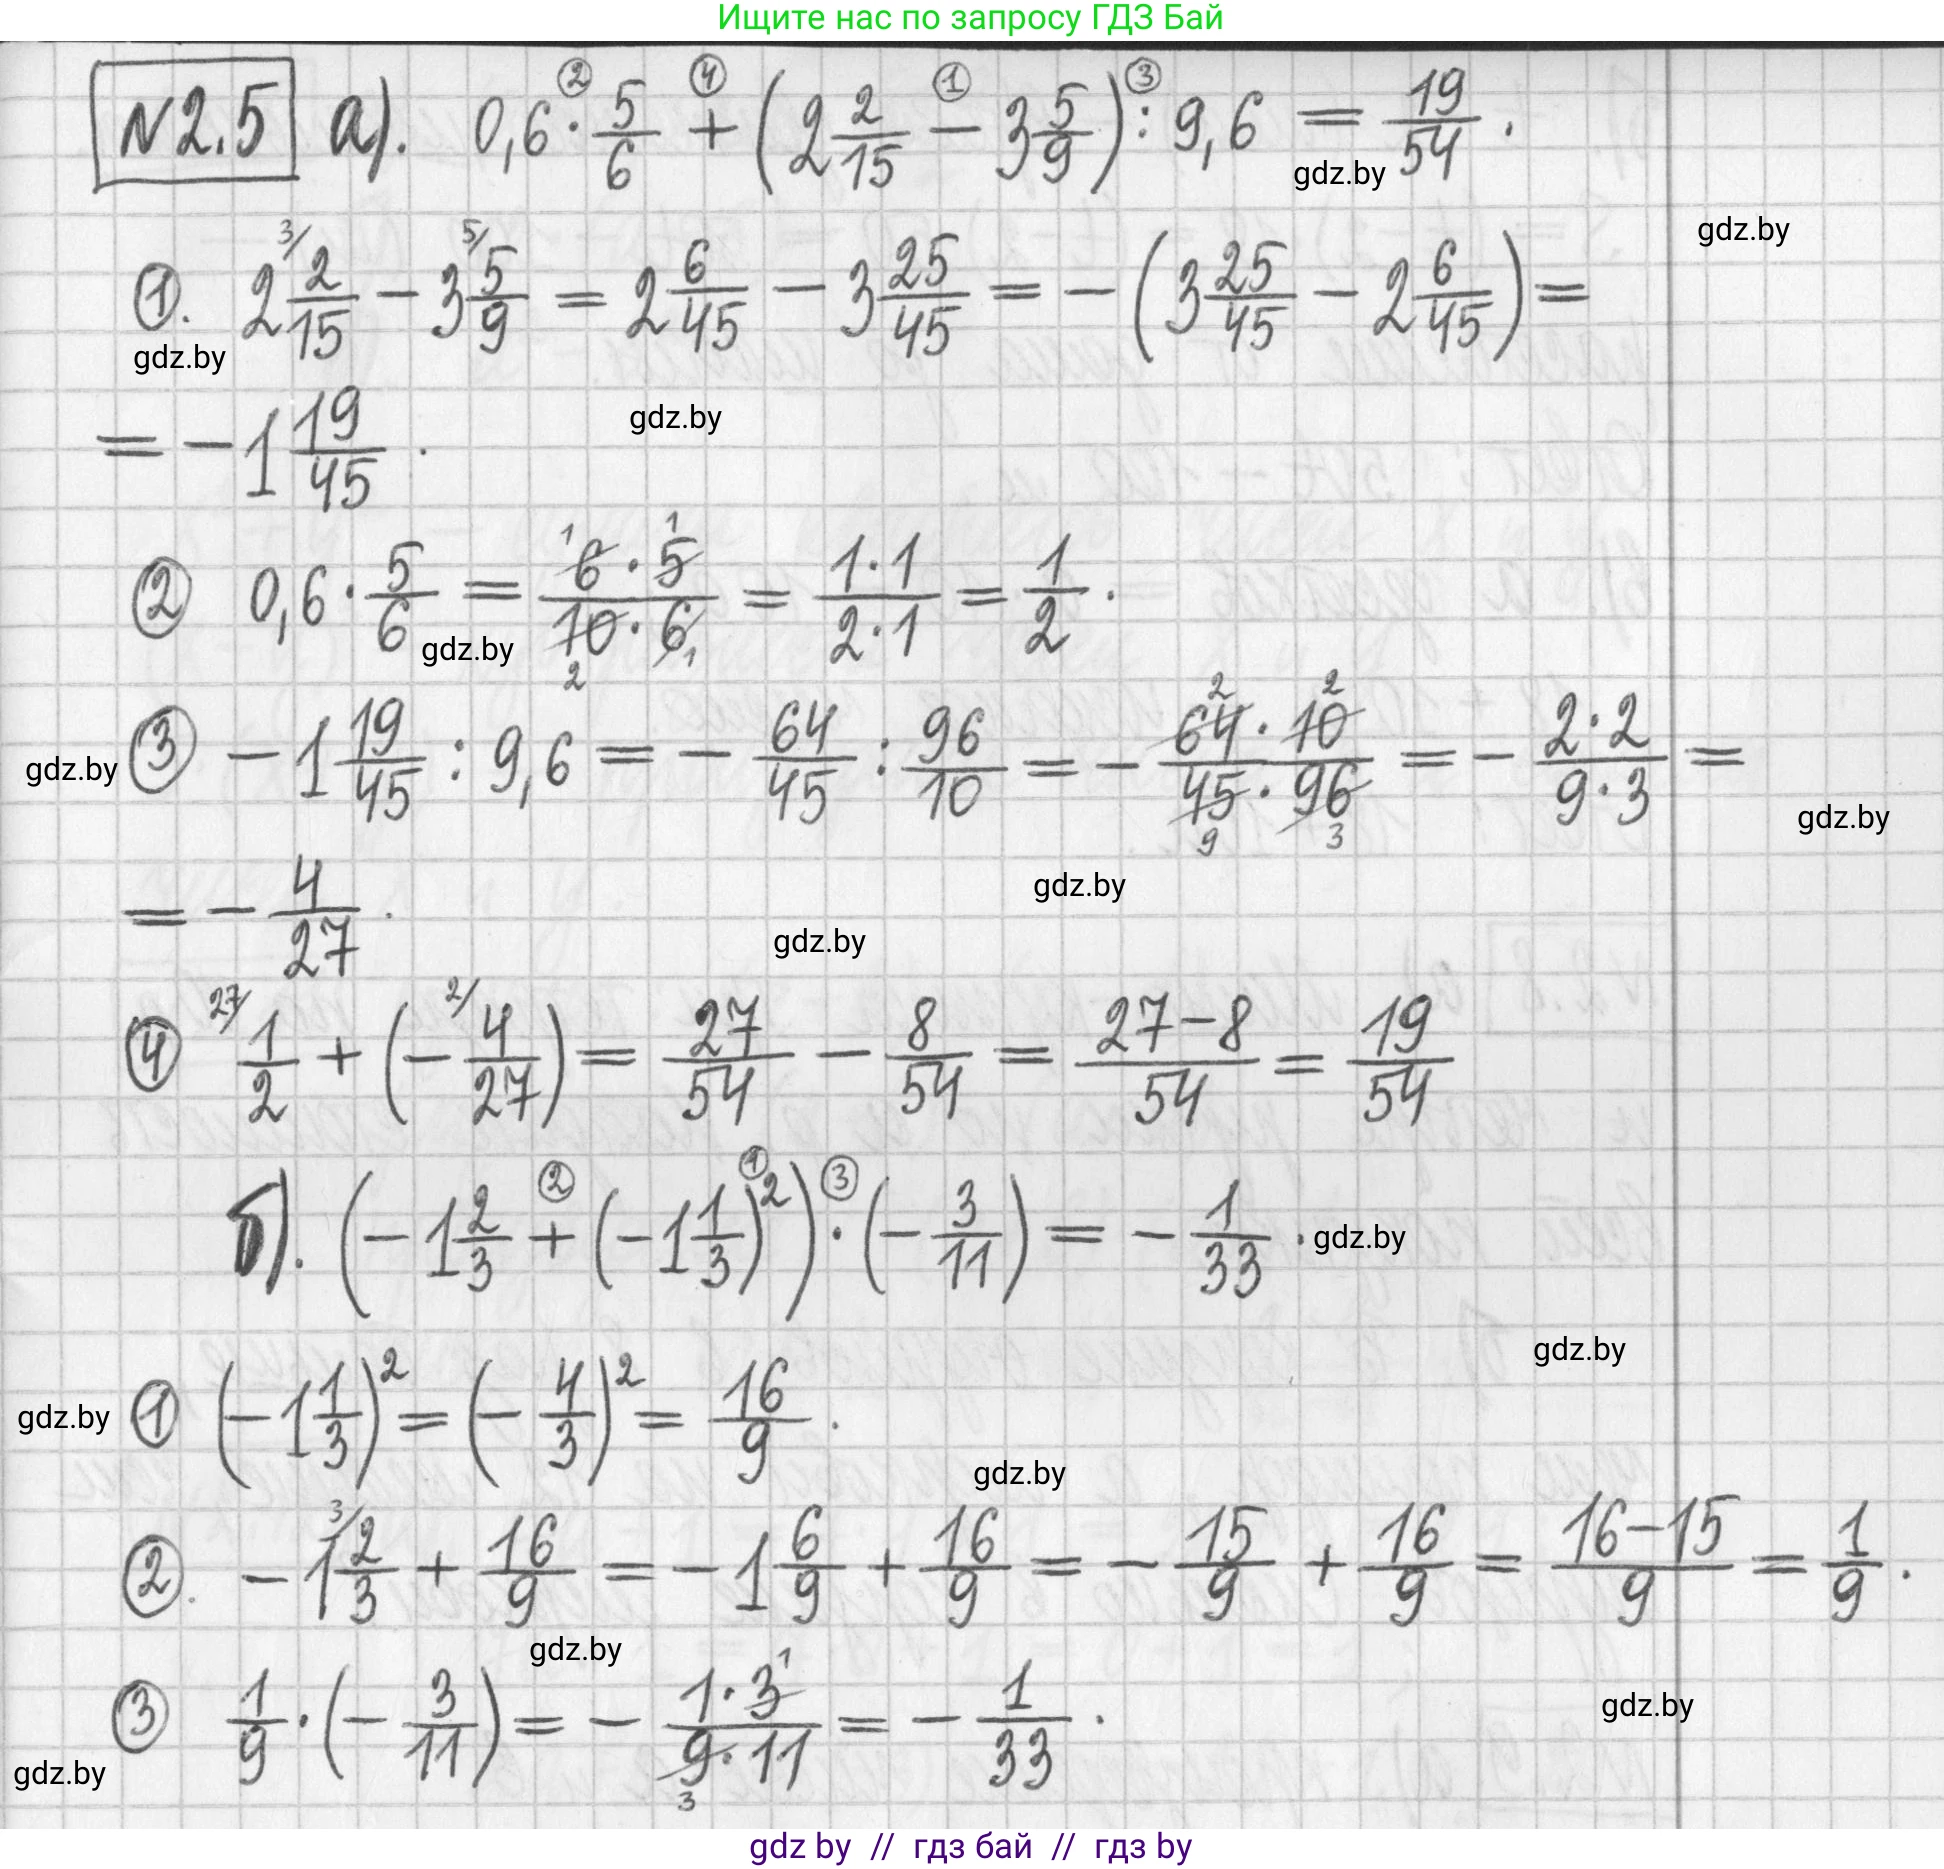 Ищите нас по запросу ГДЗ Бай
№2.5 а). 0,6 ② · 5/6 ④ + (2 2/15 ① − 3 5/9) ③ : 9,6 = 19/54.
gdz.by
gdz.by
①. 2 2/15 ³⁄ − 3 5/9 ⁵⁄ = 2 6/45 − 3 25/45 = −(3 25/45 − 2 6/45) =
gdz.by
= −1 19/45.
gdz.by
② 0,6 · 5/6 = 6·5/10·6 = 1·1/2·1 = 1/2.
gdz.by
③ −1 19/45 : 9,6 = −64/45 : 96/10 = −64·10/45·96 = −2·2/9·3 =
gdz.by
gdz.by
= −4/27.
gdz.by
gdz.by
④ ²⁷⁄ 1/2 + (− ²⁄ 4/27) = 27/54 − 8/54 = 27−8/54 = 19/54
б). (−1 2/3 ② + (−1 1/3)² ①) ③ · (−3/11) = −1/33.
gdz.by
gdz.by
① (−1 1/3)² = (−4/3)² = 16/9.
gdz.by
gdz.by
②. −1 ³⁄ 2/3 + 16/9 = −1 6/9 + 16/9 = −15/9 + 16/9 = 16−15/9 = 1/9.
gdz.by
③ 1/9 · (−3/11) = −1·3/9·11 = −1/33.
gdz.by
gdz.by
gdz by // гдз бай // гдз by